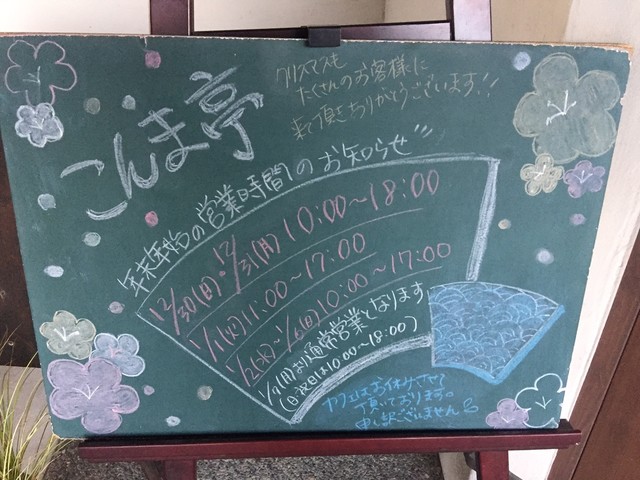 こんま亭
クリスマスも
たくさんのお客様に
来て頂きありがとうございます!!
年末年始の営業時間のお知らせ
12/30(日)・12/31(月) 10:00〜18:00
1/1(火) 11:00〜17:00
1/2(水)〜1/6(日) 10:00〜17:00
1/7(月)より通常営業となります
(日・祝日は10:00〜18:00)
カフェはお休みさせて
頂いております。
申し訳ございません